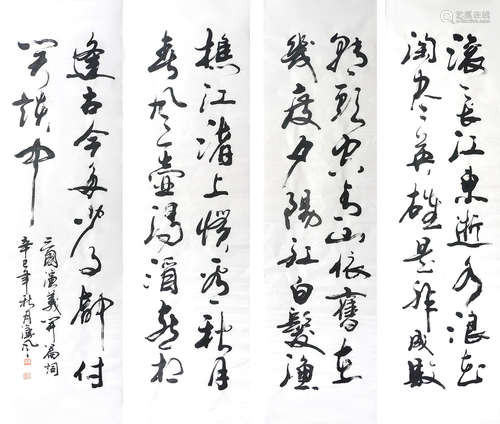 滚滚长江东逝水浪花
淘尽英雄是非成败
转头空青山依旧在
几度夕阳红白髮渔
樵江渚上惯看秋月
春风一壶浊酒喜相
逢古今多少事都付
笑谈中
三国演义开篇词
辛巳年秋月